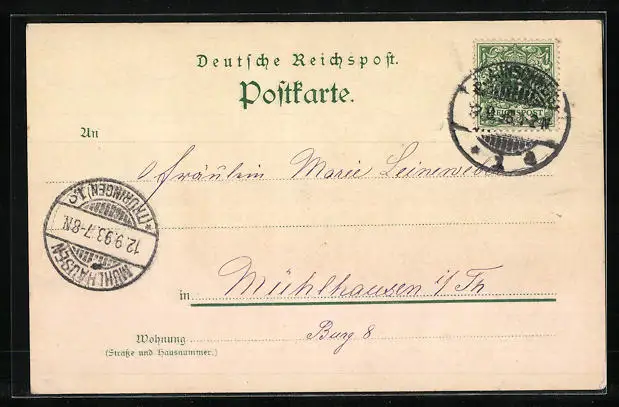 Deutsche Reichspost.
Postkarte.
An
Fräulein Marie Leineweber
in Mühlhausen i/Th
Burg 8
Wohnung
(Straße und Hausnummer.)
MÜHLHAUSEN
12.9.93.7-8N.
*(THÜRINGEN)1c
REICHSPOST